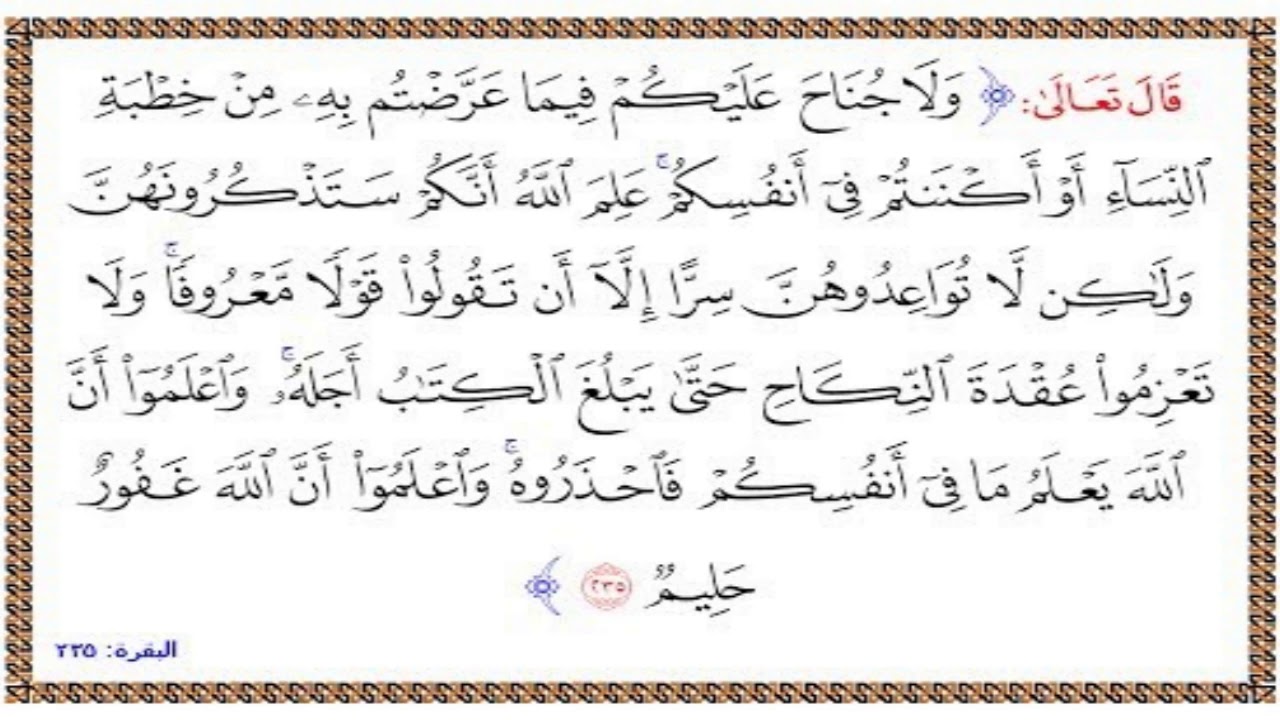 قَالَ تَعَالَىٰ: ﴿ وَلَا جُنَاحَ عَلَيْكُمْ فِيمَا عَرَّضْتُم بِهِۦ مِنْ خِطْبَةِ
ٱلنِّسَآءِ أَوْ أَكْنَنتُمْ فِىٓ أَنفُسِكُمْ ۚ عَلِمَ ٱللَّهُ أَنَّكُمْ سَتَذْكُرُونَهُنَّ
وَلَـٰكِن لَّا تُوَاعِدُوهُنَّ سِرًّا إِلَّآ أَن تَقُولُوا۟ قَوْلًا مَّعْرُوفًا ۚ وَلَا
تَعْزِمُوا۟ عُقْدَةَ ٱلنِّكَاحِ حَتَّىٰ يَبْلُغَ ٱلْكِتَـٰبُ أَجَلَهُۥ ۚ وَٱعْلَمُوٓا۟ أَنَّ
ٱللَّهَ يَعْلَمُ مَا فِىٓ أَنفُسِكُمْ فَٱحْذَرُوهُ ۚ وَٱعْلَمُوٓا۟ أَنَّ ٱللَّهَ غَفُورٌ
حَلِيمٌ ٢٣٥ ﴾
البقرة: ٢٣٥